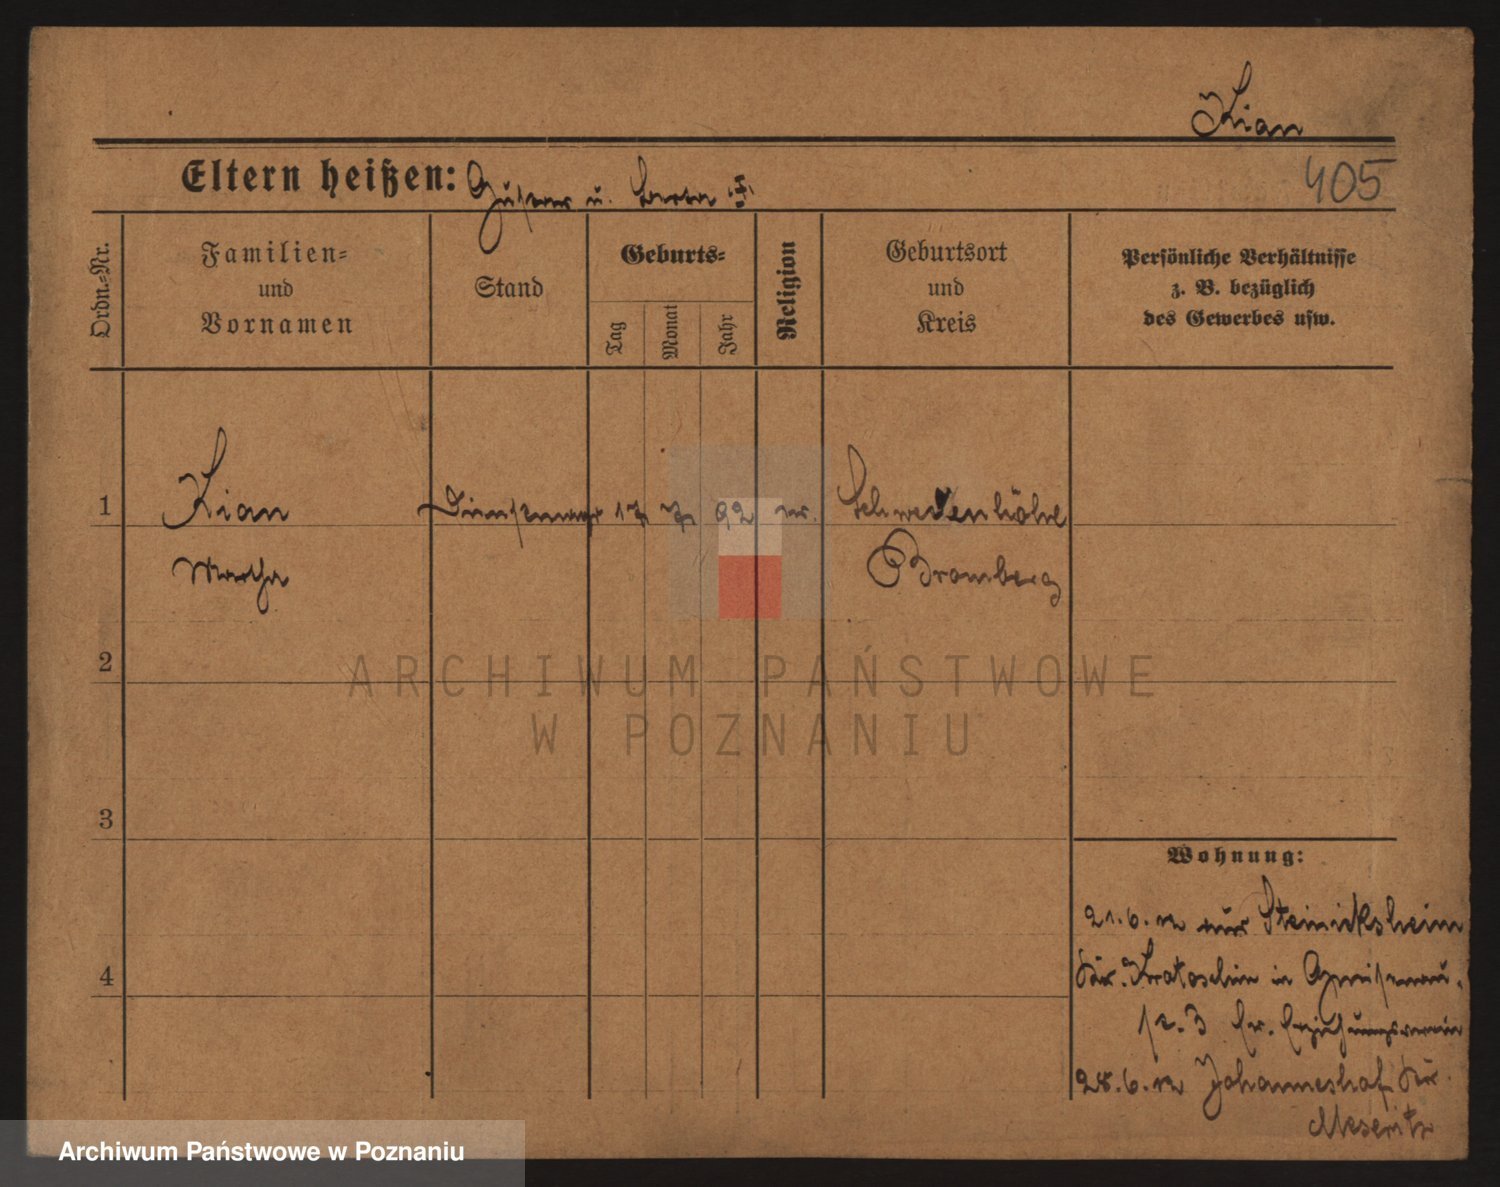 Kian
Eltern heißen: Gustav u. Berta
405
Ordn.-Nr.
Familien-
und
Vornamen
Stand
Geburts-
Tag
Monat
Jahr
Religion
Geburtsort
und
Kreis
Persönliche Verhältnisse
z. B. bezüglich
des Gewerbes usw.
1
Kian
17 7 92
Schwedenhöhe
Martha
Bromberg
2
ARCHIWUM PAŃSTWOWE
W POZNANIU
3
Wohnung:
21.6. Steinicksheim
4
Kr. Krotoschin in Gneisenau
12.3 Ev. Erziehungsverein
28.6. Johanneshof Kr.
Meseritz
Archiwum Państwowe w Poznaniu